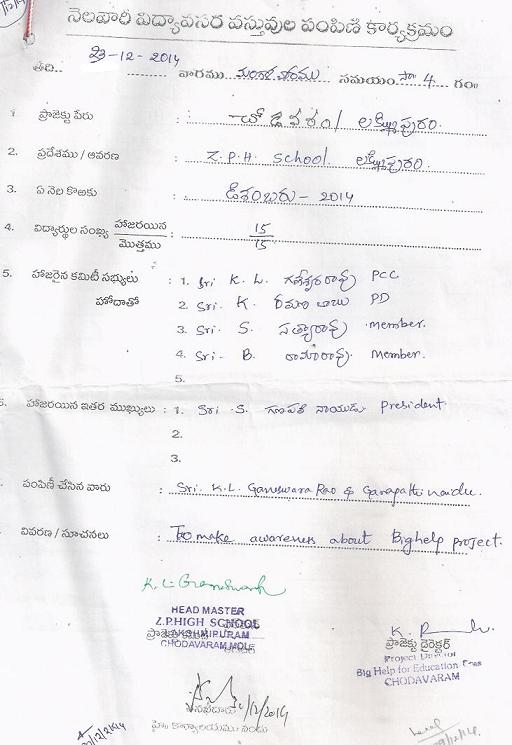 నెలవారీ విద్యావసర వస్తువుల పంపిణి కార్యక్రమం
తేది.. 23-12-2014 వారము మంగళవారము సమయం సా 4 గం॥
1 ప్రాజెక్టు పేరు : చోడవరం / లక్ష్మీపురం.
2. ప్రదేశము / ఆవరణ : Z.P.H. School. లక్ష్మీపురం.
3. ఏ నెల కొఱకు : డిశంబరు - 2014
4. విద్యార్థుల సంఖ్య హాజరయిన / మొత్తము : 15 / 15
5. హాజరైన కమిటీ సభ్యులు : 1. Sri K. L. గణేశ్వరరావు PCC
హోదాతో 2. Sri. K. రమణ బాబు PD
3. Sri. S. సత్యారావు member.
4. Sri. B. రామారావు. Member.
5.
హాజరయిన ఇతర ముఖ్యులు : 1. Sri S. గణపతి నాయుడు President
2.
3.
పంపిణీ చేసిన వారు : Sri. K.L. Ganeswara Rao & Ganapathi naidu.
వివరణ / సూచనలు : To make awareness about Bighelp project.
K. L. Ganeswarah
HEAD MASTER
Z.P.HIGH SCHOOL
LAKSHMIPURAM
CHODAVARAM MDL
ప్రాజెక్టు డైరెక్టర్
Project Director
Big Help for Education Trust
CHODAVARAM